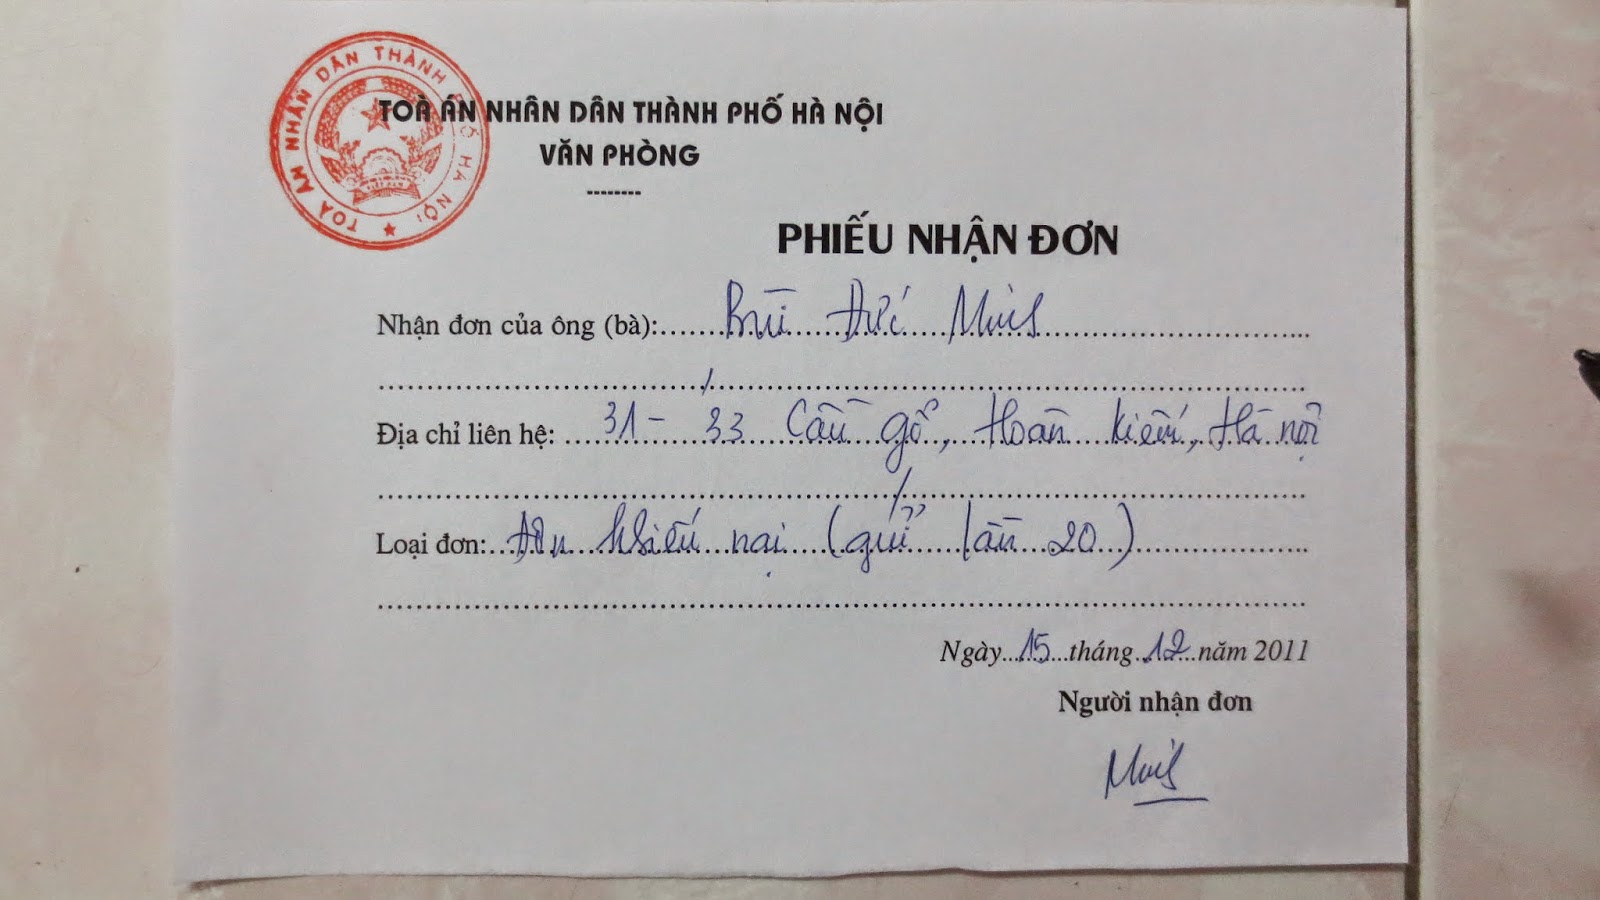 TOÀ ÁN NHÂN DÂN THÀNH PHỐ HÀ NỘI
TOÀ ÁN NHÂN DÂN THÀNH PHỐ HÀ NỘI
VĂN PHÒNG
--------
PHIẾU NHẬN ĐƠN
Nhận đơn của ông (bà):.......Bùi Đức Minh.......
Địa chỉ liên hệ: ....31 - 33 Cầu gỗ, Hoàn Kiếm, Hà nội
Loại đơn:...Đơn khiếu nại (gửi lần 20)..........
Ngày...15...tháng..12...năm 2011
Người nhận đơn
Minh